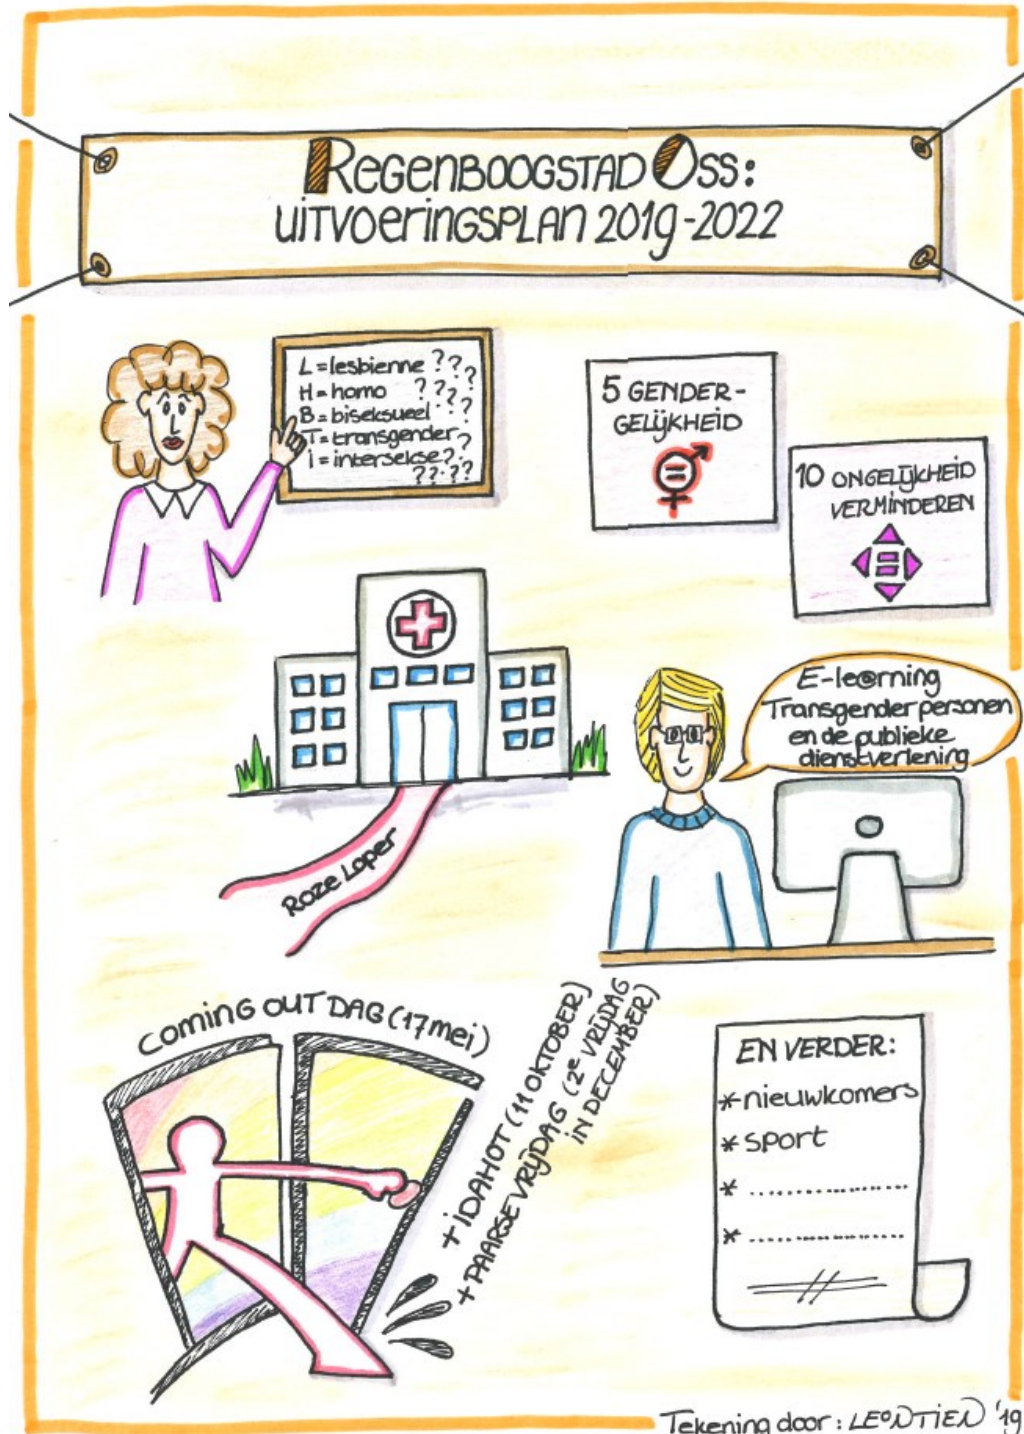 REGENBOOGSTAD OSS:
UITVOERINGSPLAN 2019-2022
L = lesbienne ???
H = homo ???
B = biseksueel ??
T = transgender ?
i = intersekse ?.
??.??
5 GENDER-
GELIJKHEID
10 ONGELIJKHEID
VERMINDEREN
E-le@rning
Transgender personen
en de publieke
dienstverlening
Roze Loper
COMING OUT DAG (17 mei)
+ IDAHOT (11 OKTOBER)
+ PAARSE VRIJDAG (2e VRIJDAG
IN DECEMBER)
EN VERDER:
* nieuwkomers
* sport
* ................
* ................
Tekening door: LEONTIEN '19